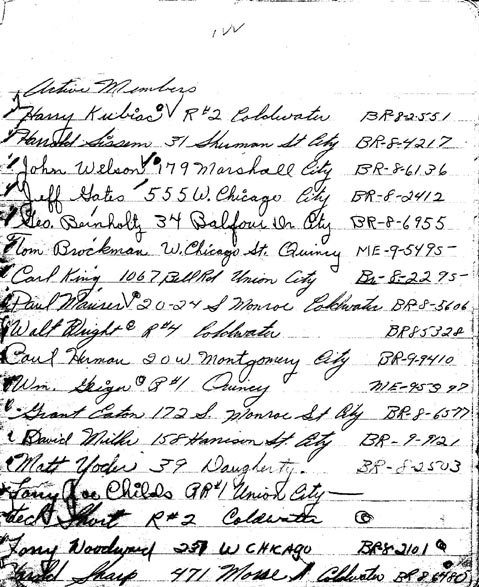 Active Members
Harry Kubiac R#2 Coldwater BR82551
Harold Sissem 31 Shurman St City BR-8-4217
John Welson 179 Marshall City BR-8-6136
Jeff Gates 555 W. Chicago City BR-8-2412
Geo. Bernholtz 34 Balfour Dr. City BR-8-6955
Tom Brockman W. Chicago St. Quincy ME-9-5495
Carl King 1067 Bell Rd Union City Br-8-2295
Paul 20-24 S Monroe Coldwater BR-8-5606
Walt Blight R#4 Coldwater BR85328
Paul Herman 20 W Montgomery City BR-9-9410
Wm. R#1 Quincy ME-95397
Grant Eaton 172 S. Monroe St City BR-8-6577
David Miller 158 Harrison St City BR-9-9121
Matt Yoder 39 Daugherty. BR-8-2503
Tony Joe Childs RR#1 Union City
Short R#2 Coldwater
Tony Woodward 257 W CHICAGO BR8-2101
Harold Sharp 471 Morse St Coldwater BR 8